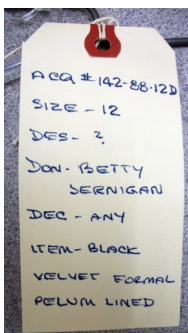 ACQ # 142-88-12D
SIZE - 12
DES - ?
DON - BETTY
JERNIGAN
DEC - ANY
ITEM - BLACK
VELVET FORMAL
PELUM LINED